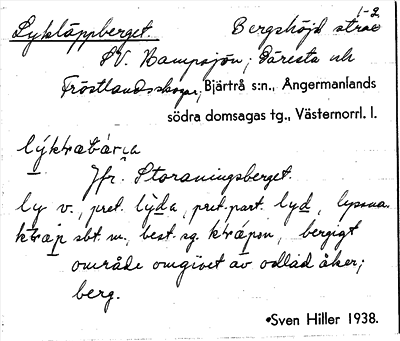 Lykläppberget. Bergshöjd strax 1-2
SV. Hampsjön; Däresta och
Fröstlandsskogar, Bjärtrå s:n., Ångermanlands
södra domsagas tg., Västernorrl. l.
Jfr. Storaningsberget.
ly v., pret. lyda, pret. part. lyd, lyssna.
sbt. m., best. sg. bergigt
område omgivet av odlad åker;
berg.
•Sven Hiller 1938.